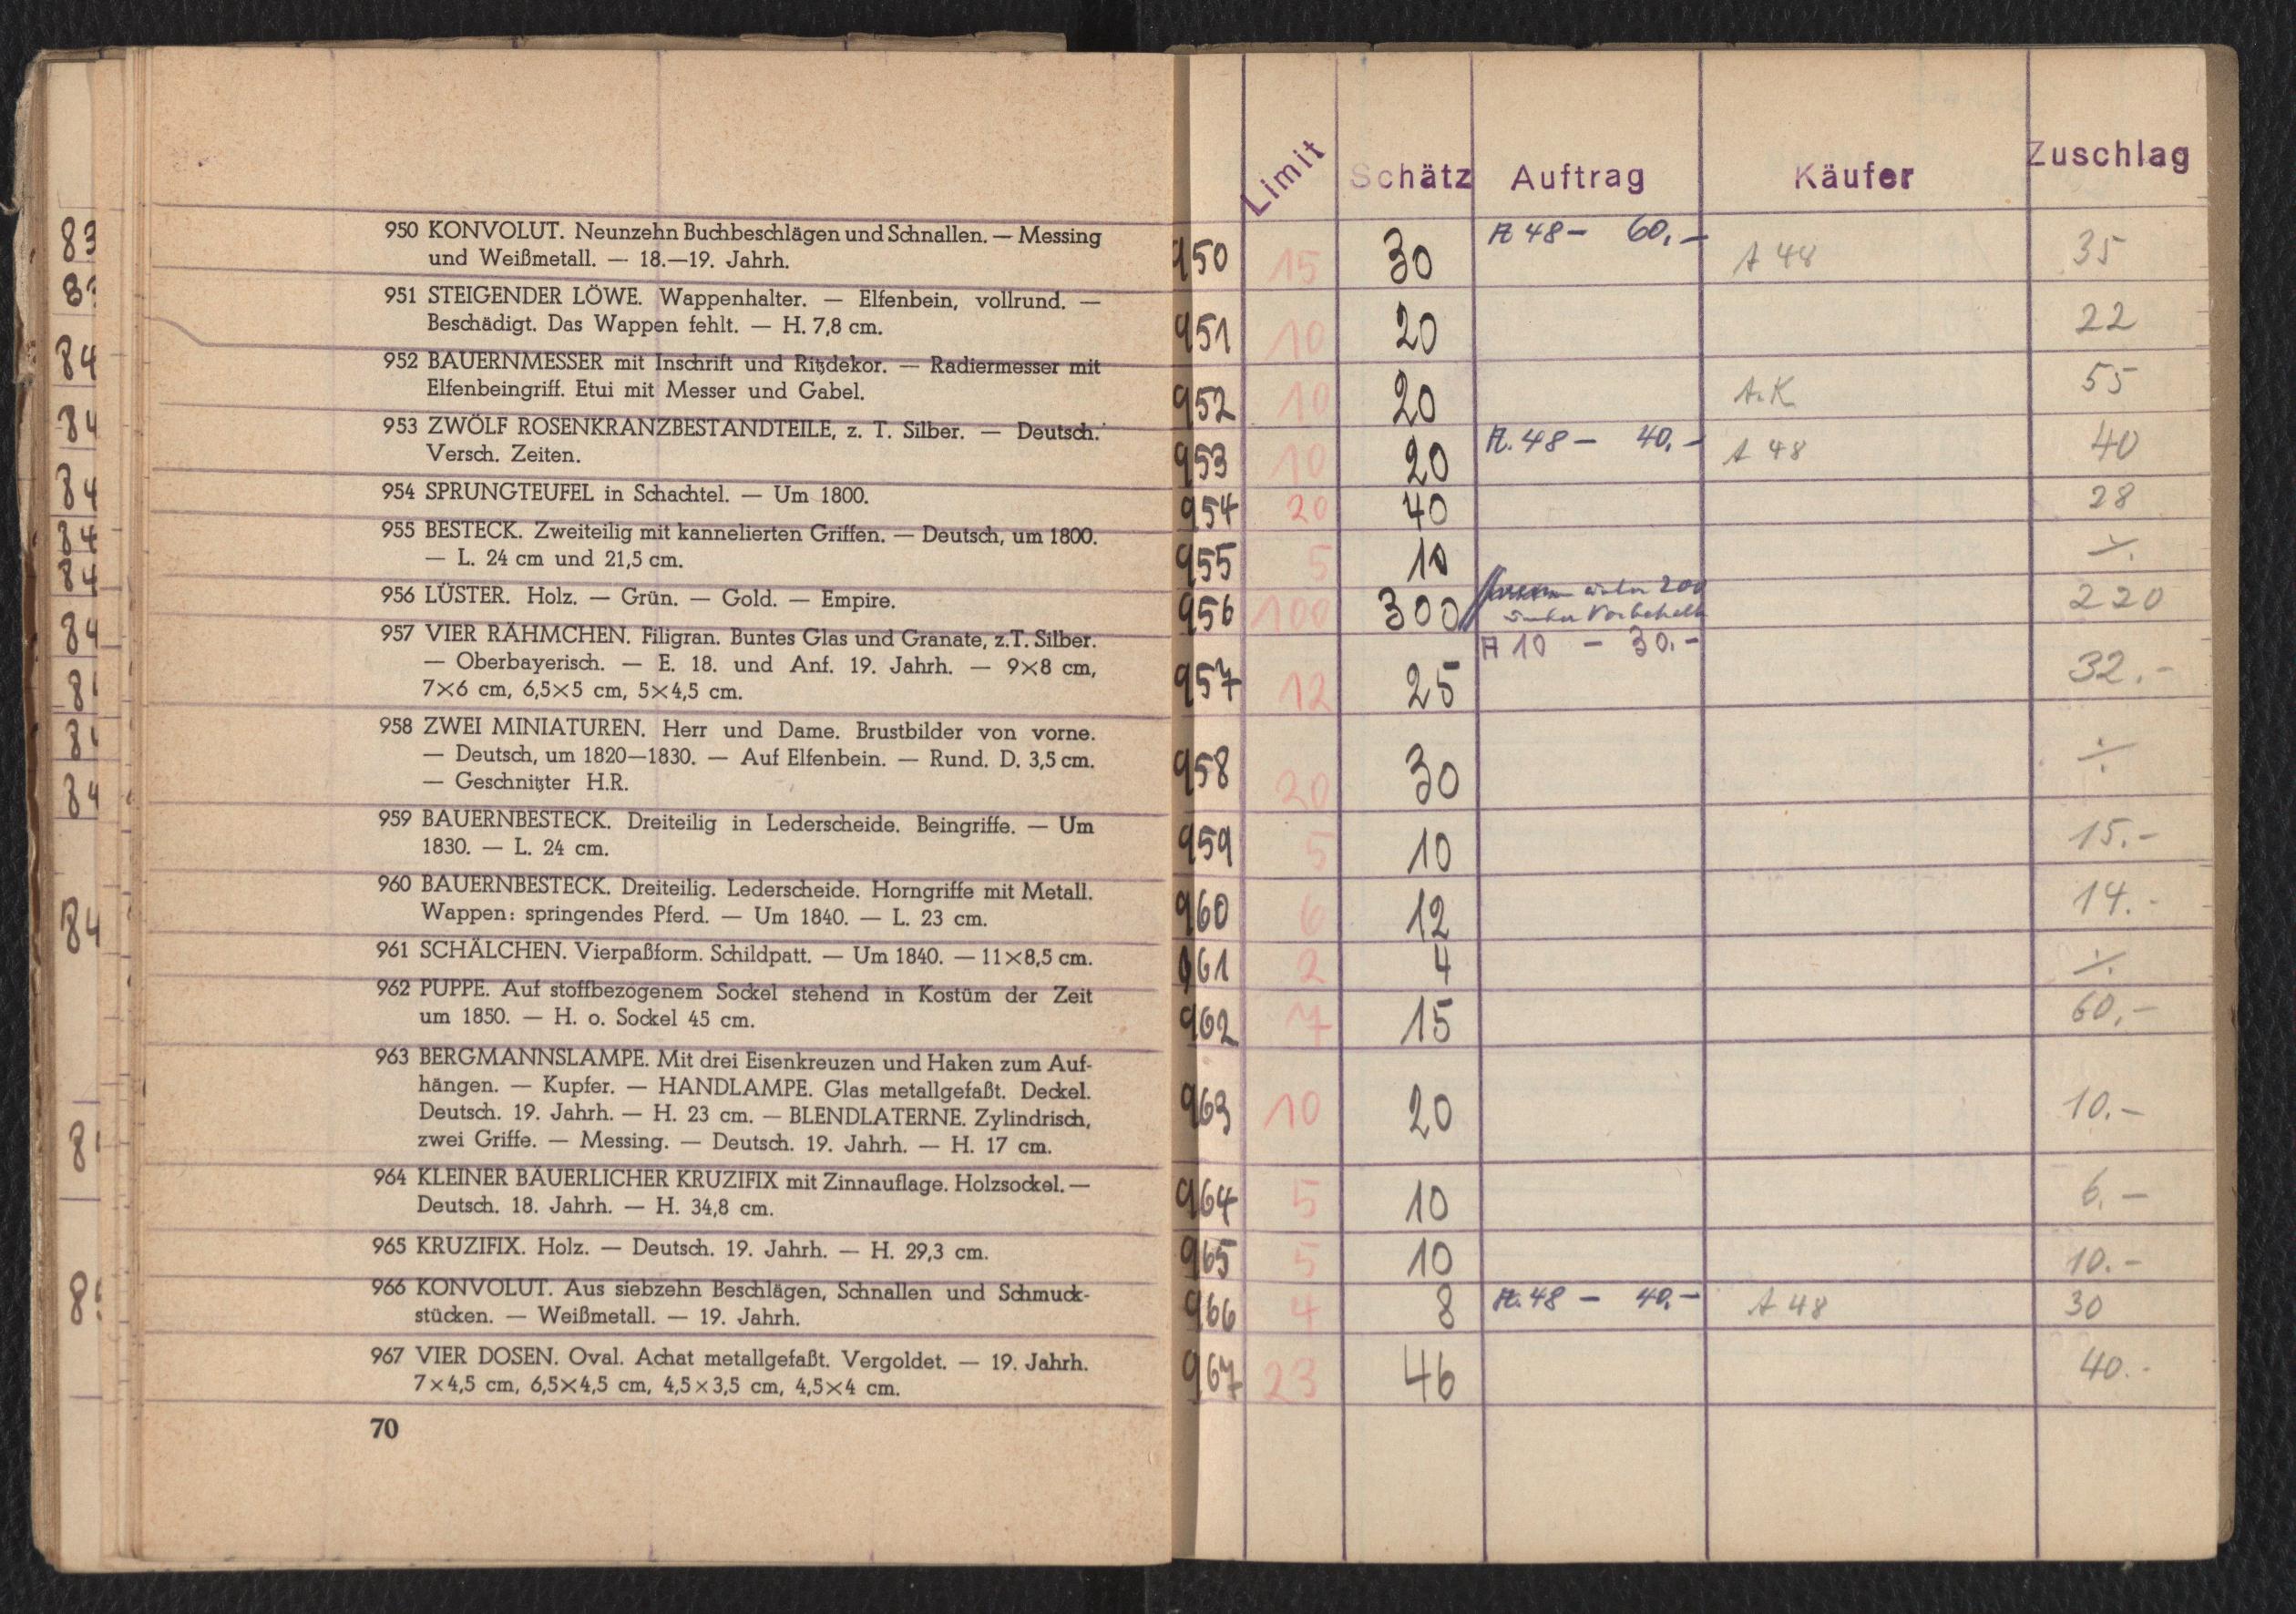 950 KONVOLUT. Neunzehn Buchbeschlägen und Schnallen. — Messing
und Weißmetall. — 18.—19. Jahrh.
951 STEIGENDER LÖWE. Wappenhalter. — Elfenbein, vollrund. —
Beschädigt. Das Wappen fehlt. — H. 7,8 cm.
952 BAUERNMESSER mit Inschrift und Ritzdekor. — Radiermesser mit
Elfenbeingriff. Etui mit Messer und Gabel.
953 ZWÖLF ROSENKRANZBESTANDTEILE, z. T. Silber. — Deutsch.
Versch. Zeiten.
954 SPRUNGTEUFEL in Schachtel. — Um 1800.
955 BESTECK. Zweiteilig mit kannelierten Griffen. — Deutsch, um 1800.
— L. 24 cm und 21,5 cm.
956 LÜSTER. Holz. — Grün. — Gold. — Empire.
957 VIER RÄHMCHEN. Filigran. Buntes Glas und Granate, z.T. Silber.
— Oberbayerisch. — E. 18. und Anf. 19. Jahrh. — 9×8 cm,
7×6 cm, 6,5×5 cm, 5×4,5 cm.
958 ZWEI MINIATUREN. Herr und Dame. Brustbilder von vorne.
— Deutsch, um 1820—1830. — Auf Elfenbein. — Rund. D. 3,5 cm.
— Geschnitzter H.R.
959 BAUERNBESTECK. Dreiteilig in Lederscheide. Beingriffe. — Um
1830. — L. 24 cm.
960 BAUERNBESTECK. Dreiteilig. Lederscheide. Horngriffe mit Metall.
Wappen: springendes Pferd. — Um 1840. — L. 23 cm.
961 SCHÄLCHEN. Vierpaßform. Schildpatt. — Um 1840. — 11×8,5 cm.
962 PUPPE. Auf stoffbezogenem Sockel stehend in Kostüm der Zeit
um 1850. — H. o. Sockel 45 cm.
963 BERGMANNSLAMPE. Mit drei Eisenkreuzen und Haken zum Auf-
hängen. — Kupfer. — HANDLAMPE. Glas metallgefaßt. Deckel.
Deutsch. 19. Jahrh. — H. 23 cm. — BLENDLATERNE. Zylindrisch,
zwei Griffe. — Messing. — Deutsch. 19. Jahrh. — H. 17 cm.
964 KLEINER BÄUERLICHER KRUZIFIX mit Zinnauflage. Holzsockel. —
Deutsch. 18. Jahrh. — H. 34,8 cm.
965 KRUZIFIX. Holz. — Deutsch. 19. Jahrh. — H. 29,3 cm.
966 KONVOLUT. Aus siebzehn Beschlägen, Schnallen und Schmuck-
stücken. — Weißmetall. — 19. Jahrh.
967 VIER DOSEN. Oval. Achat metallgefaßt. Vergoldet. — 19. Jahrh.
7×4,5 cm, 6,5×4,5 cm, 4,5×3,5 cm, 4,5×4 cm.
70
Limit Schätz Auftrag Käufer Zuschlag
950 15 30 A 48 – 60.– A 48 35
951 10 20 22
952 10 20 A.K. 55
953 10 20 A. 48 – 40.– A 48 40
954 20 40 28
955 5 10 ⁒
956 100 300 200 220
unter Vorbehalt
957 12 25 A 10 – 30.– 32.–
958 20 30 ⁒
959 5 10 15.–
960 6 12 14.–
961 2 4 ⁒
962 7 15 60.–
963 10 20 10.–
964 5 10 6.–
965 5 10 10.–
966 4 8 A. 48 – 40.– A 48 30
967 23 46 40.-